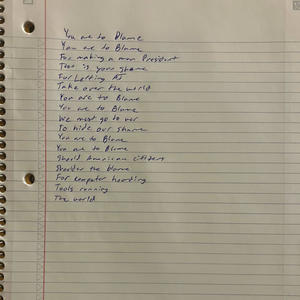 You are to Blame
You are to Blame
For making a man President
This is your shame
For Letting AI
Take over the world
You are to Blame
You are to Blame
We must go to war
To hide our shame
You are to Blame
You are to Blame
Should American citizens
Shoulder the blame
For computer hoarding
Tools running
The world